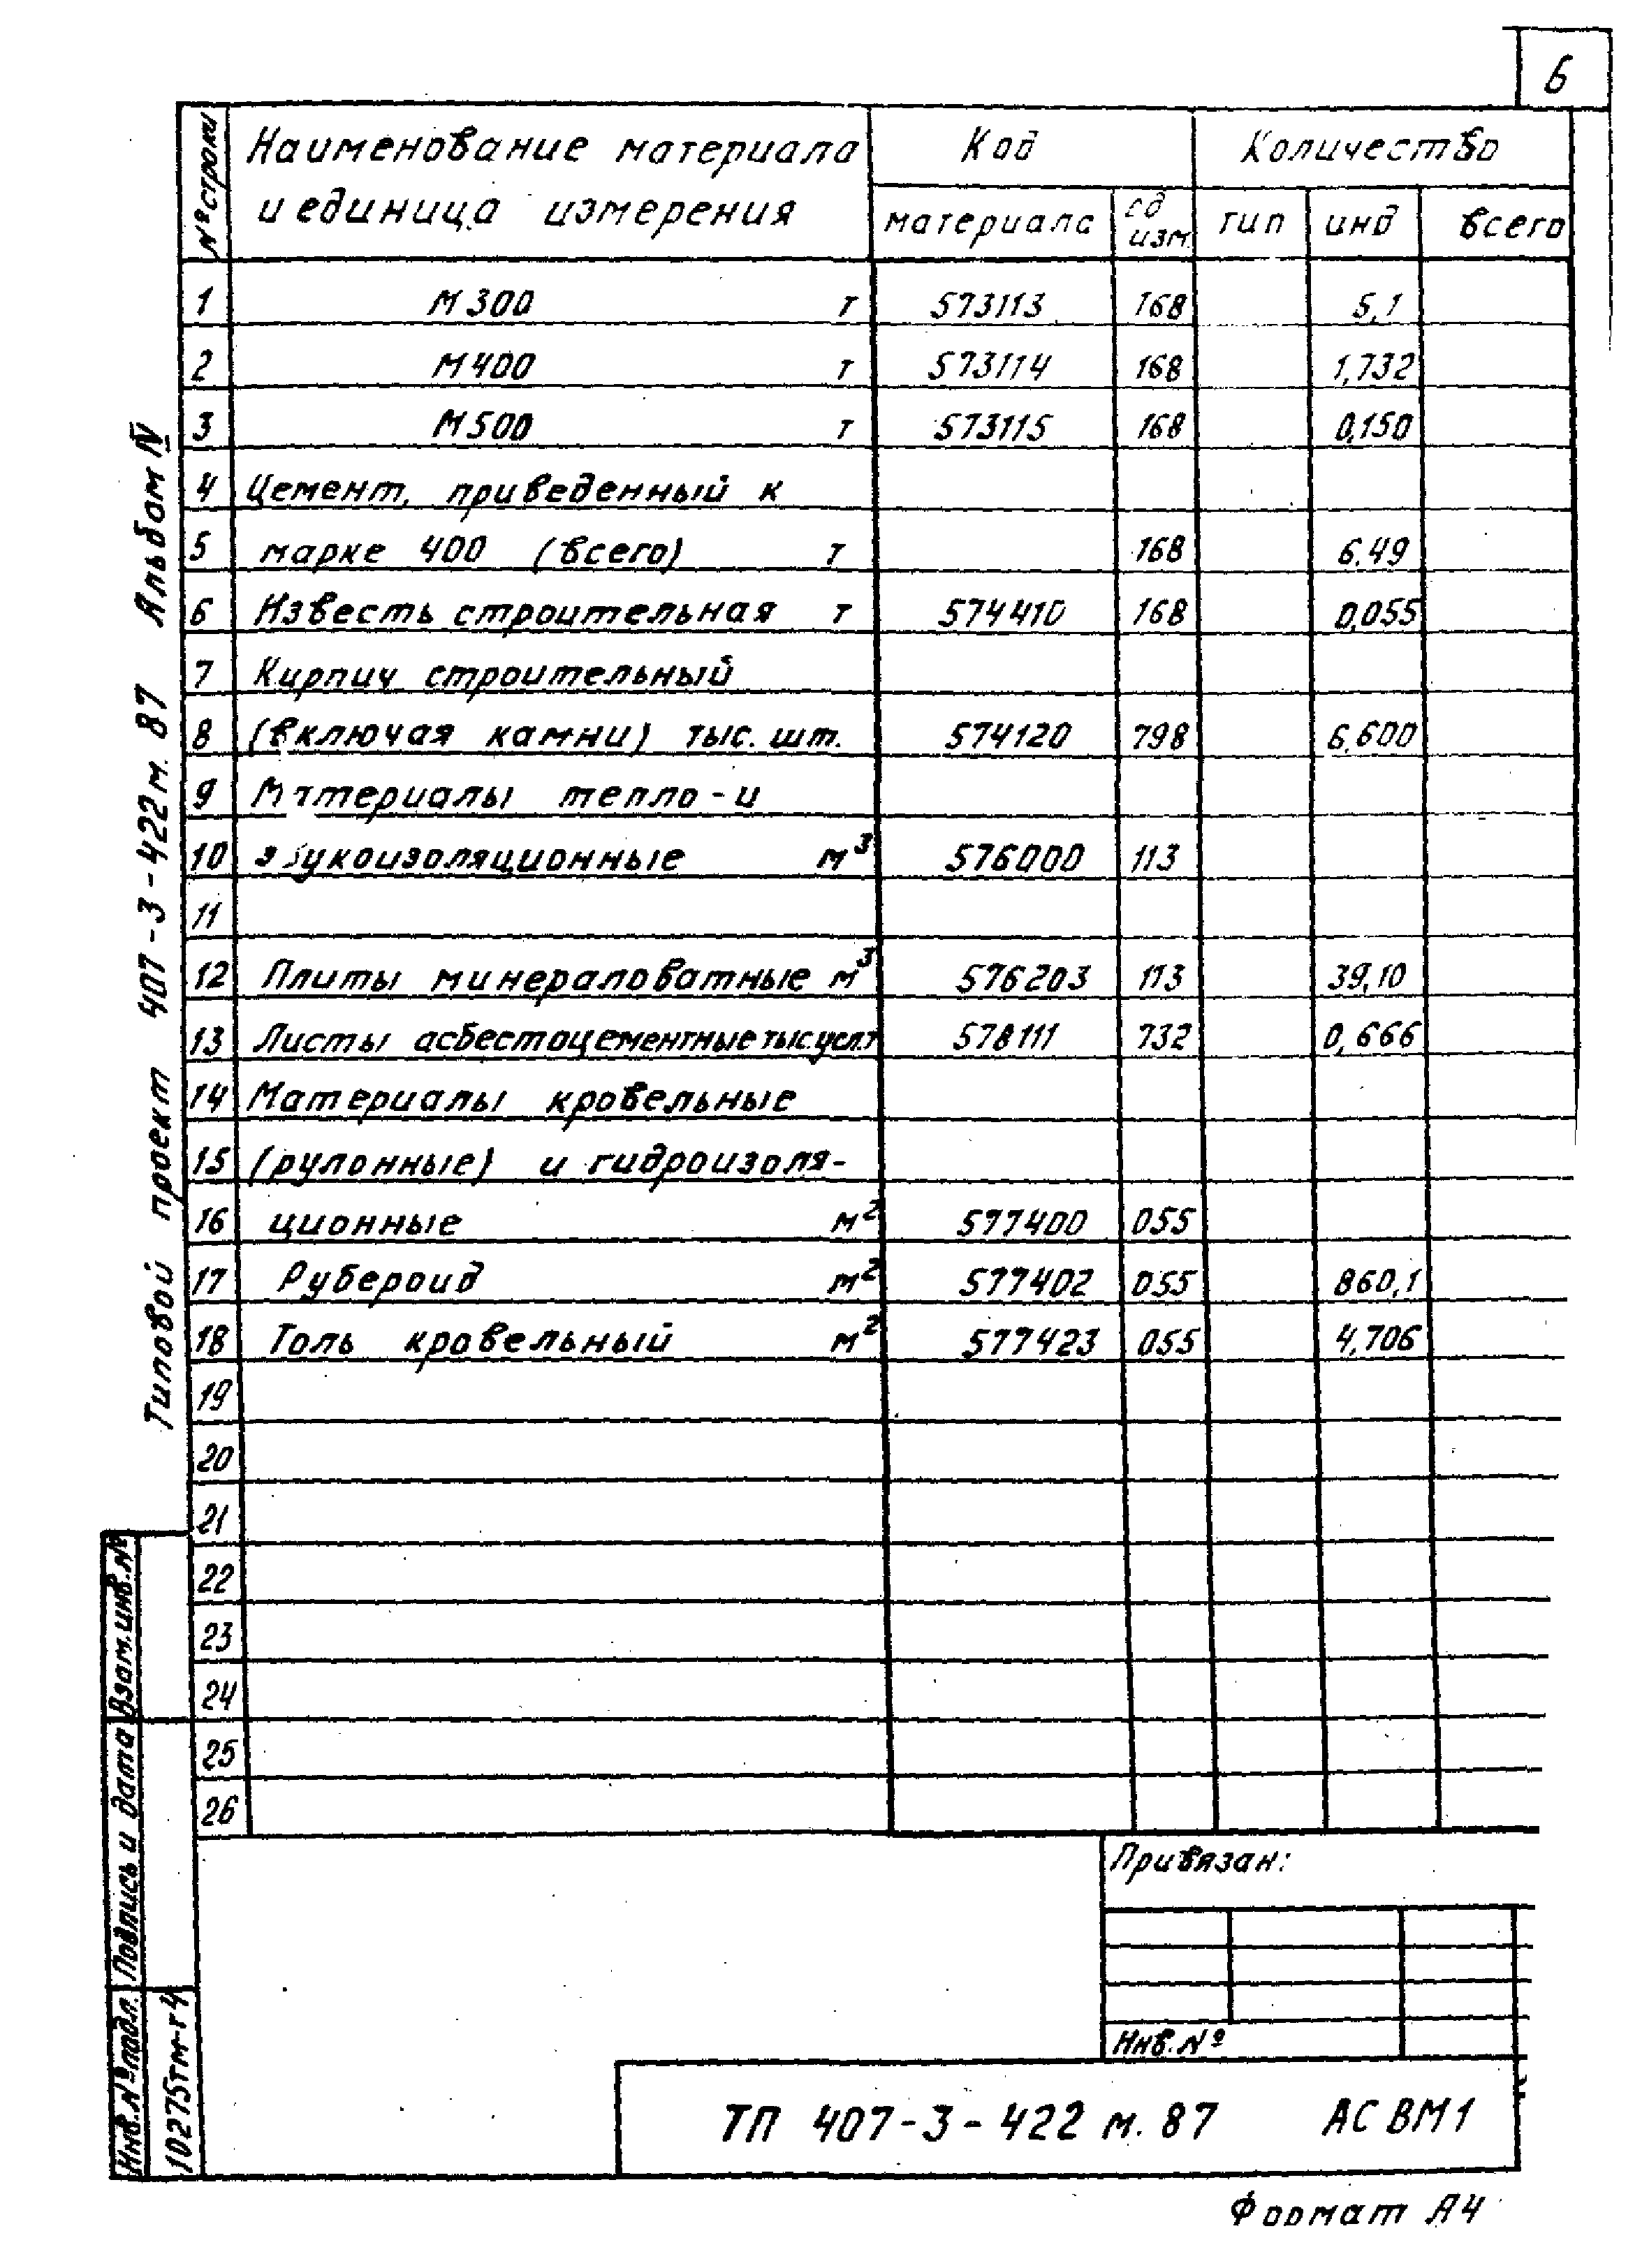 6
№ строки
Наименование материала
и единица измерения
Код
Количество
материала
ед изм.
тип
инд
всего
1 М300 т 573113 168 5,1
2 М400 т 573114 168 1,732
3 М500 т 573115 168 0,150
4 Цемент, приведенный к
5 марке 400 (всего) т 168 6,49
6 Известь строительная т 574410 168 0,055
7 Кирпич строительный
8 (включая камни) тыс. шт. 574120 798 6,600
9 Материалы тепло - и
10 звукоизоляционные м³ 576000 113
11
12 Плиты минераловатные м³ 576203 113 39,10
13 Листы асбестоцементные тыс.усл.т 578111 732 0,666
14 Материалы кровельные
15 (рулонные) и гидроизоля-
16 ционные м² 577400 055
17 Рубероид м² 577402 055 860,1
18 Толь кровельный м² 577423 055 4,706
19
20
21
22
23
24
25
26
Типовой проект 407-3-422 м. 87 Альбом
Взам.инв.№
Подпись и дата
Инв.№подл.
10275тм-т4
Привязан:
Инв.№
ТП 407-3-422 м. 87 АС ВМ1
Формат А4